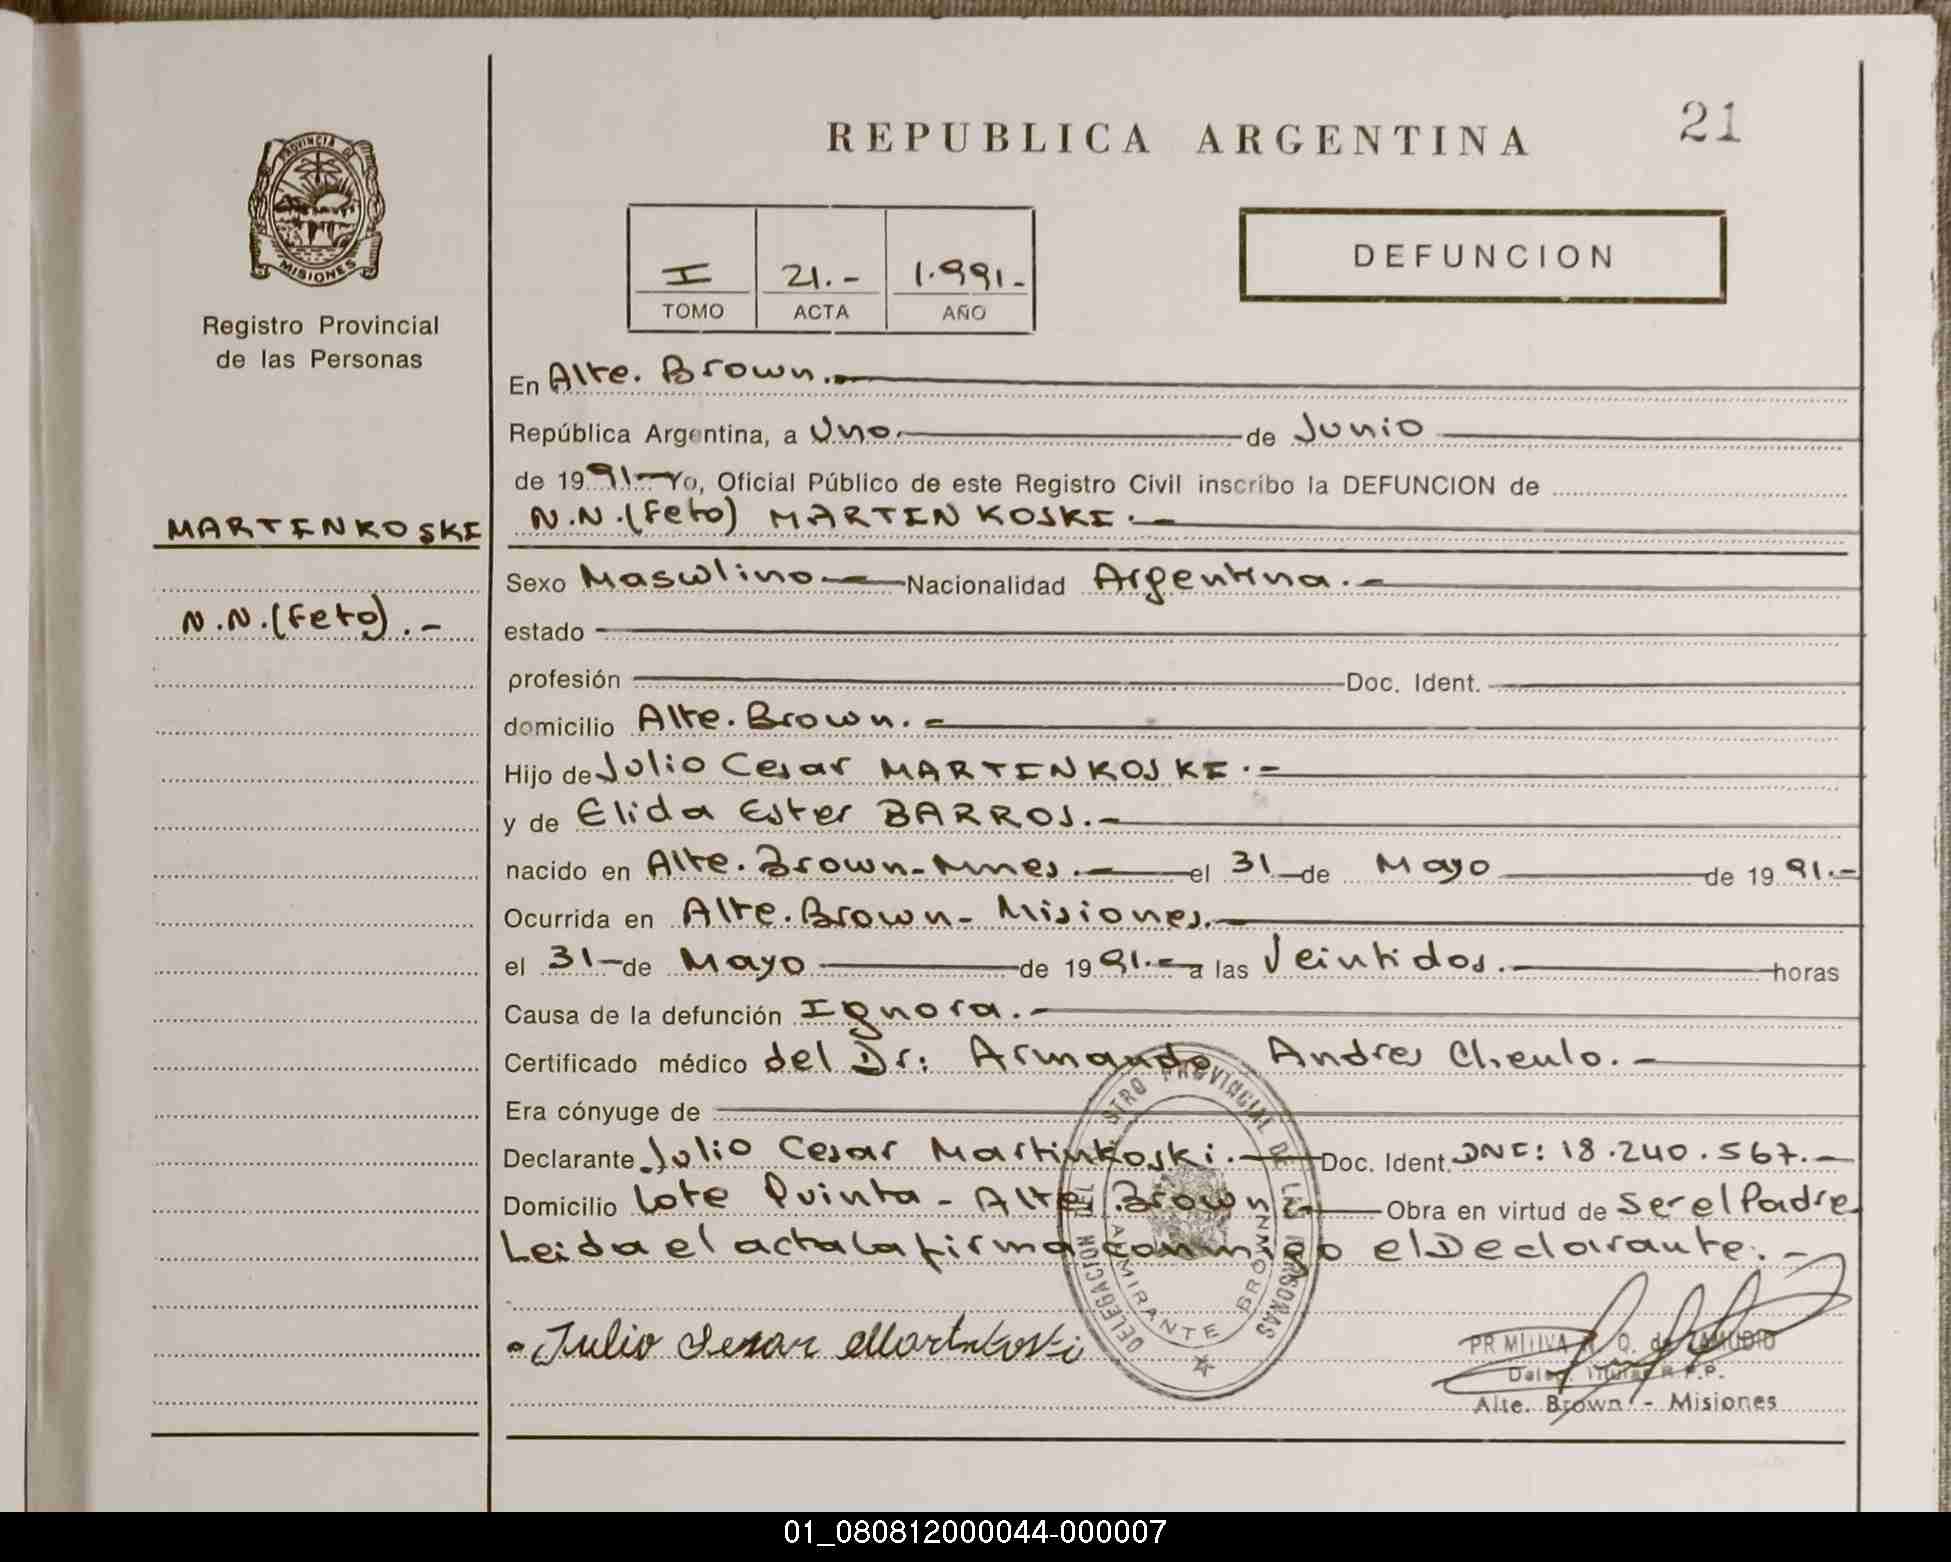 REPUBLICA ARGENTINA
21
PROVINCIA DE
MISIONES
Registro Provincial
de las Personas
I 21.- 1.991.-
TOMO ACTA AÑO
DEFUNCION
En Alte. Brown.
República Argentina, a Uno. de Junio
de 1991- Yo, Oficial Público de este Registro Civil inscribo la DEFUNCION de
MARTENKOSKE
N.N.(feto) MARTENKOSKE.-
Sexo Masculino Nacionalidad Argentina.-
N.N.(feto).-
estado
profesión Doc. Ident.
domicilio Alte. Brown.-
Hijo de Julio Cesar MARTENKOSKE.-
y de Elida Ester BARROS.-
nacido en Alte. Brown-Mnes.- el 31 de Mayo de 1991.-
Ocurrida en Alte. Brown- Misiones.-
el 31- de Mayo de 1991.- a las Veintidos. horas
Causa de la defunción Ignora.-
Certificado médico del Dr: Armando Andres .-
Era cónyuge de
Declarante Julio Cesar Martinkoski.- Doc. Ident. DNI: 18.240.567.-
Domicilio Lote Quinta - Alte. Brown.- Obra en virtud de ser el Padre
Leida el acta la firma conmigo el Declarante.-
Julio Sesar Martinkoski
DELEGACION DEL PROVINCIAL DE LAS PERSONAS
ALMIRANTE BROWN
Q. de
Titular R.P.P.
Alte. Brown - Misiones
01_080812000044-000007